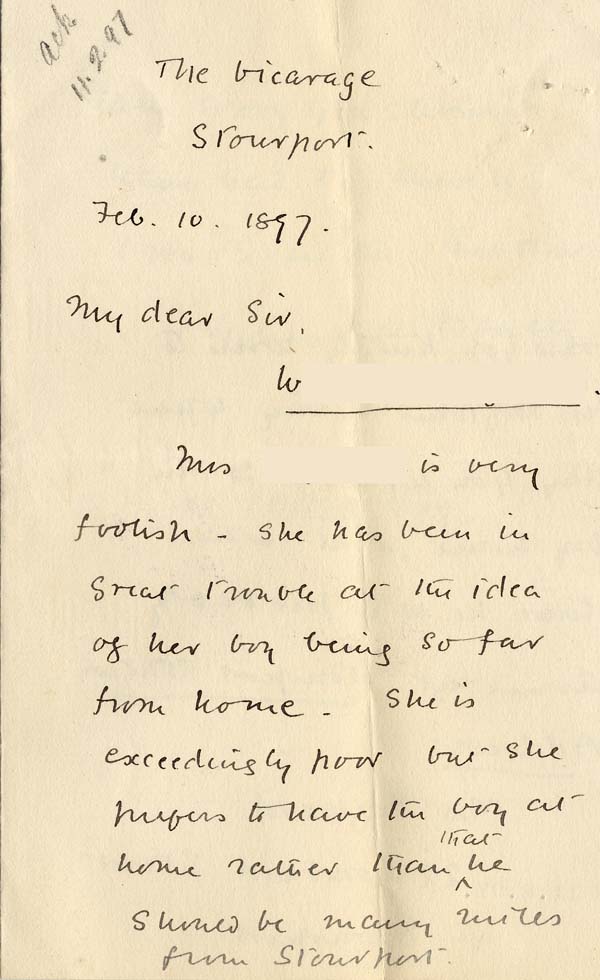 ack
11.2.97
The Vicarage
Stourport.
Feb. 10. 1897.
My dear Sir,
W
Mrs is very
foolish - She has been in
great trouble at the idea
of her boy being so far
from home. She is
exceedingly poor but she
prefers to have the boy at
that
home rather than ^ he
should be many miles
from Stourport.